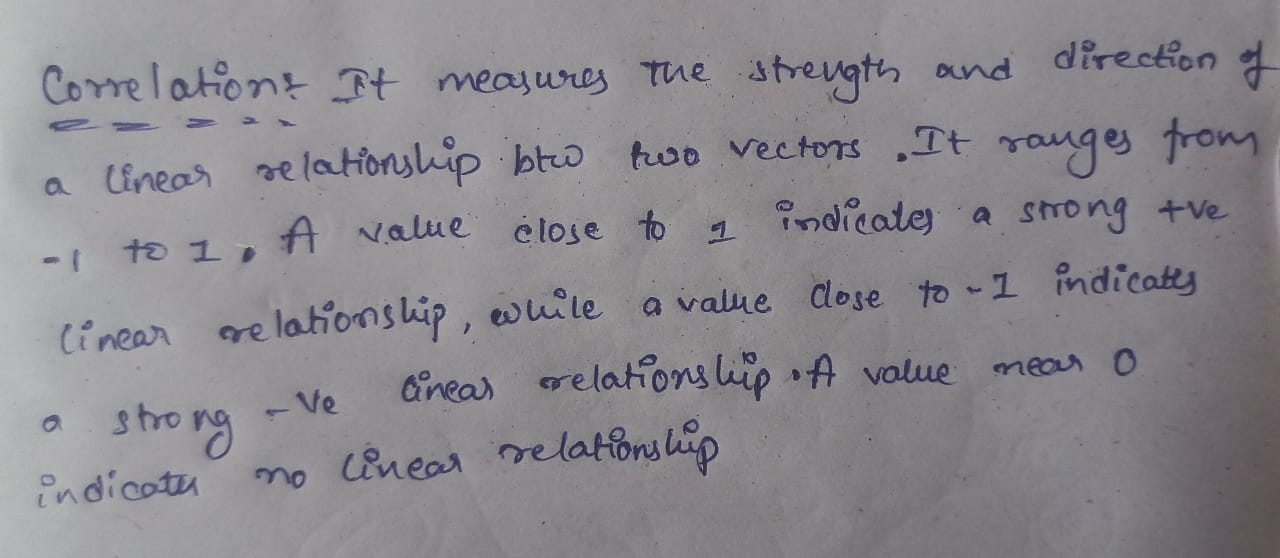 Correlation: It measures the strength and direction of
a linear relationship btw two vectors. It ranges from
-1 to 1. A value close to 1 indicates a strong +ve
linear relationship, while a value close to -1 indicates
a strong -ve linear relationship. A value near 0
indicates no linear relationship